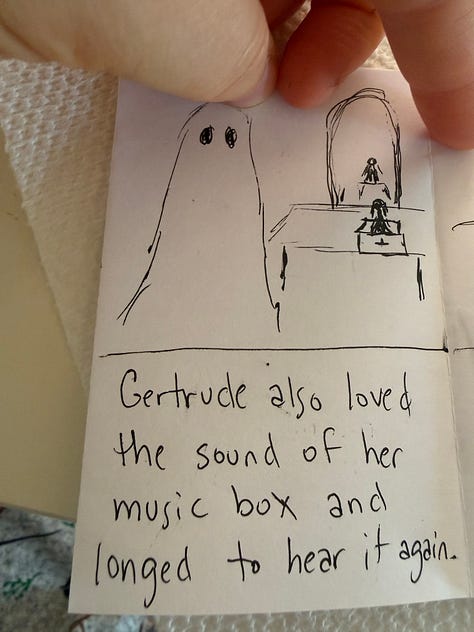 Gertrude also loved
the sound of her
music box and
longed to hear it again.